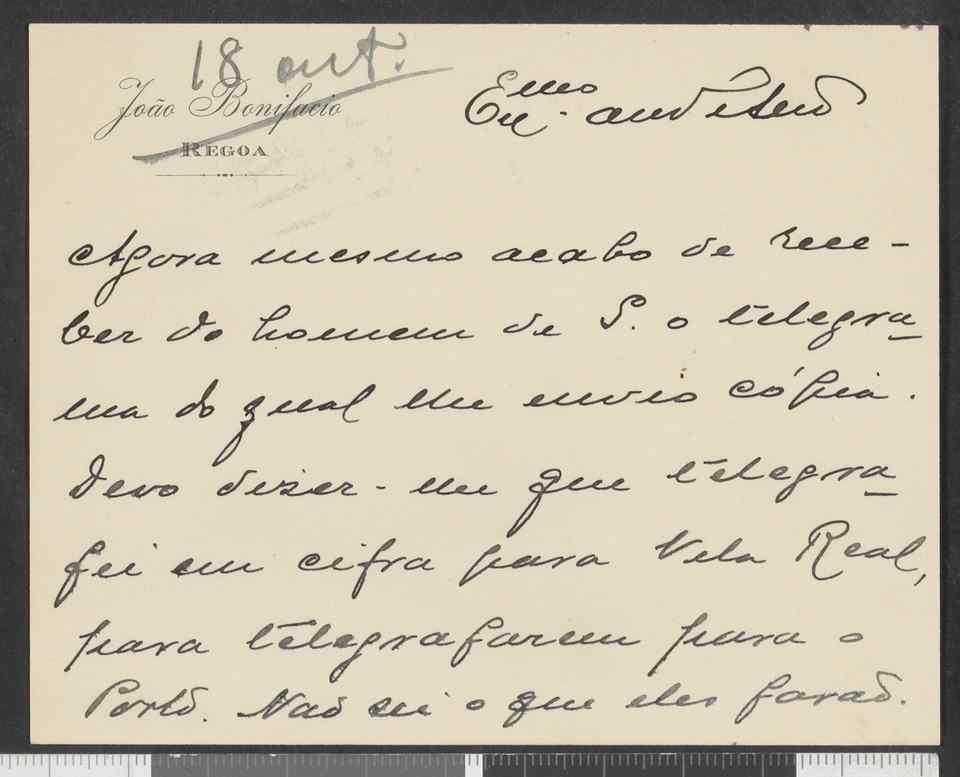 18 out.
João Bonifacio
REGOA
Exmo
Agora mesmo acabo de rece-
ber do homem de S. o telegra-
ma do qual lhe envio cópia.
Devo dizer-lhe que telegra-
fei em cifra para Vila Real,
para telegrafarem para o
Porto. Não sei o que eles farão.